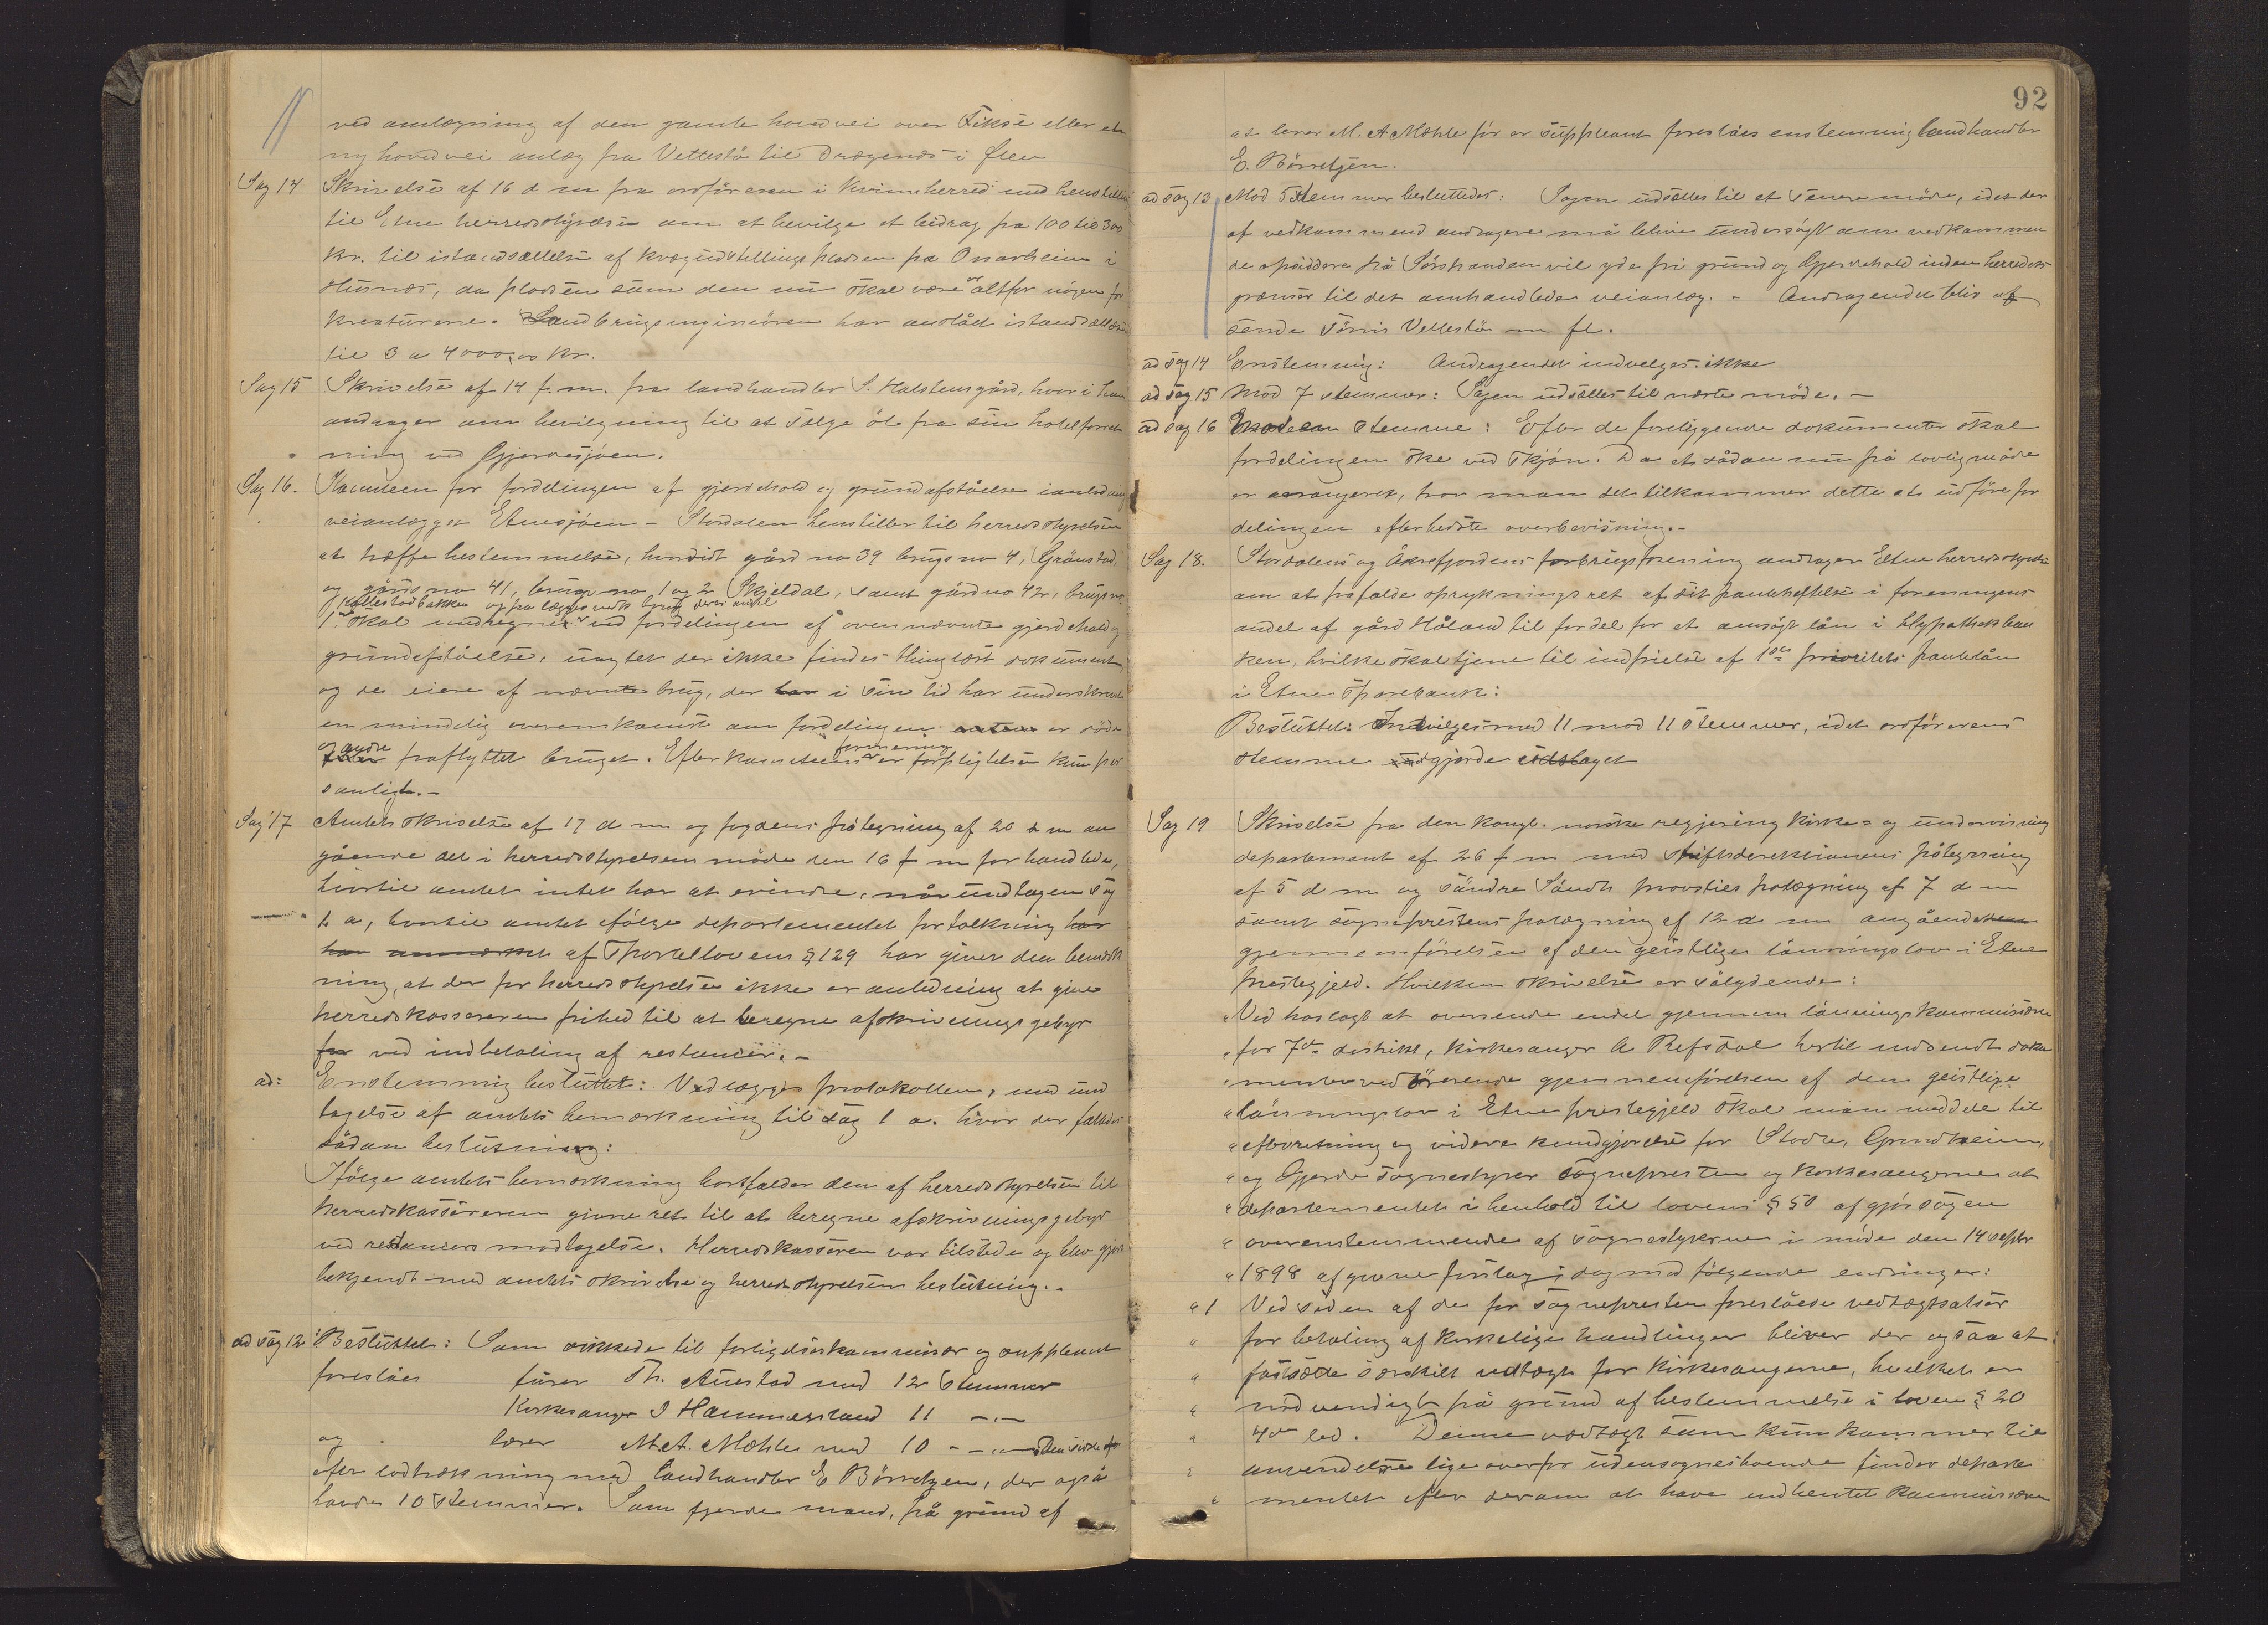 ved omlægning af den gamle hovedvei over Fikse eller en
ny hovedvei anlæg fra Vettestø til Drægenes i Ølen
Sag 14 Skrivelse af 16 d m fra ordføreren i Kvinneherred med henstillen
til Etne herredsstyrelse om at bevilge et bidrag fra 100 til 300
kr. til istandsættelse af kvægudstillingspladsen paa Onarheim i
Husnæs, da pladsen som den nu skal være altfor nögen for
kreaturerne. Landbrugsingeniören har anslået istandsættelsen
til 3 a 4000,00 kr.
Sag 15 Skrivelse af 14 f.m. fra landhandler S. Halstensgård, hvor i han
andrager om bevilgning til at sælge öl fra sin hotelforret
ning ved Gjerdesjøen.
Sag 16. Komiteen for fordelingen af gjerdehold og grundafståelse ianledning
veianlægget Etnesjøen - Stordalen henstiller til herredsstyrelsen
at træffe bestemmelse, hvorvidt gård no 39 brugs no 4, Grönstad,
og gårds no 41, brugs no 1 og 2 Skjeldal, samt gård no 42, brugs no
Kallestadbakken og fra lægges vedk brug deres andel
1 skal undregnes ved fordelingen af ovennævnte gjerdehold og
grundafståelse, uagtet der ikke findes thinglæst dokument
og de eiere af nævnte brug, der har i sin tid har underskrevet
en mindelig overenskomst om fordelingen er döde
og andre fraflyttet bruget. Efter komiteens formening er forpligtelsen kun per
sonligt.-
Sag 17 Amtets skrivelse af 17 d m og fogdens påtegning af 20 d m an
gående det i herredsstyrelsens möde den 16 f m forhandlede,
hvortil amtet intet har at erindre, når undtagen sag
1 a, hvortil amtet ifölge departementet fortolkning har
har af Thostellovens § 129 har givet den bemærk
ning, at der for herredsstyrelsen ikke er anledning at give
herredskassereren frihed til at beregne afskrivningsgebyr
for ved indbetaling af restancer.-
ad: Enstemmig besluttet: Vedlægges protokollen, med und
tagelse af amtets bemærkning til sag 1 a. hvor der fattedes
sådan beslutning:
Ifölge amtets bemærkning bortfalder den af herredsstyrelsen til
herredskassereren givne ret til at beregne afskrivningsgebyr
ved restancers modtagelse. Herredskasseren var tilstede og blev gjort
bekjendt med amtets skrivelse og herredsstyrelsens beslutning.-
ad sag 12 Besluttet: Som vikkede til forligelseskommisær og suppleant
foreslåes furer Th. Auestad med 12 stemmer
Kirkesanger I Hammersland 11 -"-
og lærer M. A. Mæhle med 10 -"- Den sidste
efter lodtrækning med landhandler E Börretzen, der også
havde 10 stemmer. Som fjerde mand, på grund af
92
at lærer M. A Mæhle för er suppleant foreslåes enstemmig landhandler
E. Börretzen.
ad sag 13 Mod 5 stemmer besluttedes: Sagen udsættes til et senere möde, idet der
af vedkommend andragere må blive undersögt om vedkommen
de opsiddere på Sörstranden vil yde fri grund og Gjerdehold inden herredets
grænser til det omhandlede veianlæg. - Andragendet blir af
sende Tönis Vettestø m fl.
ad sag 14 Enstemmig: Andragendet indvelges ikke
ad sag 15 Mod 7 stemmer: Sagen udsættes til næste möde. -
ad sag 16 Mod een stemme: Efter de foreliggende dokumenter skal
fordelingen ske ved skjön. Da et sådan nu på lovlig måde
er arrangeret, tror man det tilkommer dette at udföre for
delingen efter bedste overbevisning.-
Sag 18. Stordalens og Åkrefjordens forbrugsforening andrager Etne herredsstyrelse
om at frafalde oprykningsret af sit pantheftelse i foreningens
andel af gård Håland til fordel for et ansögt lån i Hypothekban
ken, hvilke skal tjene til indfrielse af 1ste prioritets pantelån
i Etne sparebank:
Besluttet: Indvilges med 11 mod 11 stemmer, idet ordförerens
stemme udgjorde udslaget
Sag 19 Skrivelse fra den kongl. norske regjering kirke- og undervisning
departement af 26 f m med stiftsdirektionens påtegning
af 5 d m og söndre Söndh. provsties paategning af 7 d m
samt sogneprestens paategning af 12 d m angående
gjennemförelsen af den geistlige lönningslov i Etne
prestegjeld. Hvilken skrivelse er sålydende:
"Ved hoslagt at oversende endel gjennem lönningskommissionen
" for 7de distrikt, kirkesanger A Refsdal hertil indsendt doku
" menter vedrörende gjennemförelsen af den geistlige
" lönningslov i Etne prestegjeld skal man meddele til
" efterretning og videre kundgjörelse for Stodle, Grindheim,
" og Gjerde sognestyrer sognepresten og kirkesangerne at
" departementet i henhold til lovens § 50 afgjör sagen
" overenstemmende af sognestyrerne i möde den 14 septbr
" 1898 afgivne forslag i dag med følgende endringer:
" 1 Ved siden af de for sognepresten foreslåede vedtægtsatser
" for betaling af kirkelige handlinger bliver der ogsaa at
" fastsætte særskilt vedtægt for kirkesangerne, hvilket er
" nödvendigt på grund af bestemmelse i loven § 20
" 4de led. Denne vedtægt som kun kommer til
" anvendelse lige overfor udensognesboende finder departe
" mentet efter derom at have indhentet kommissionen